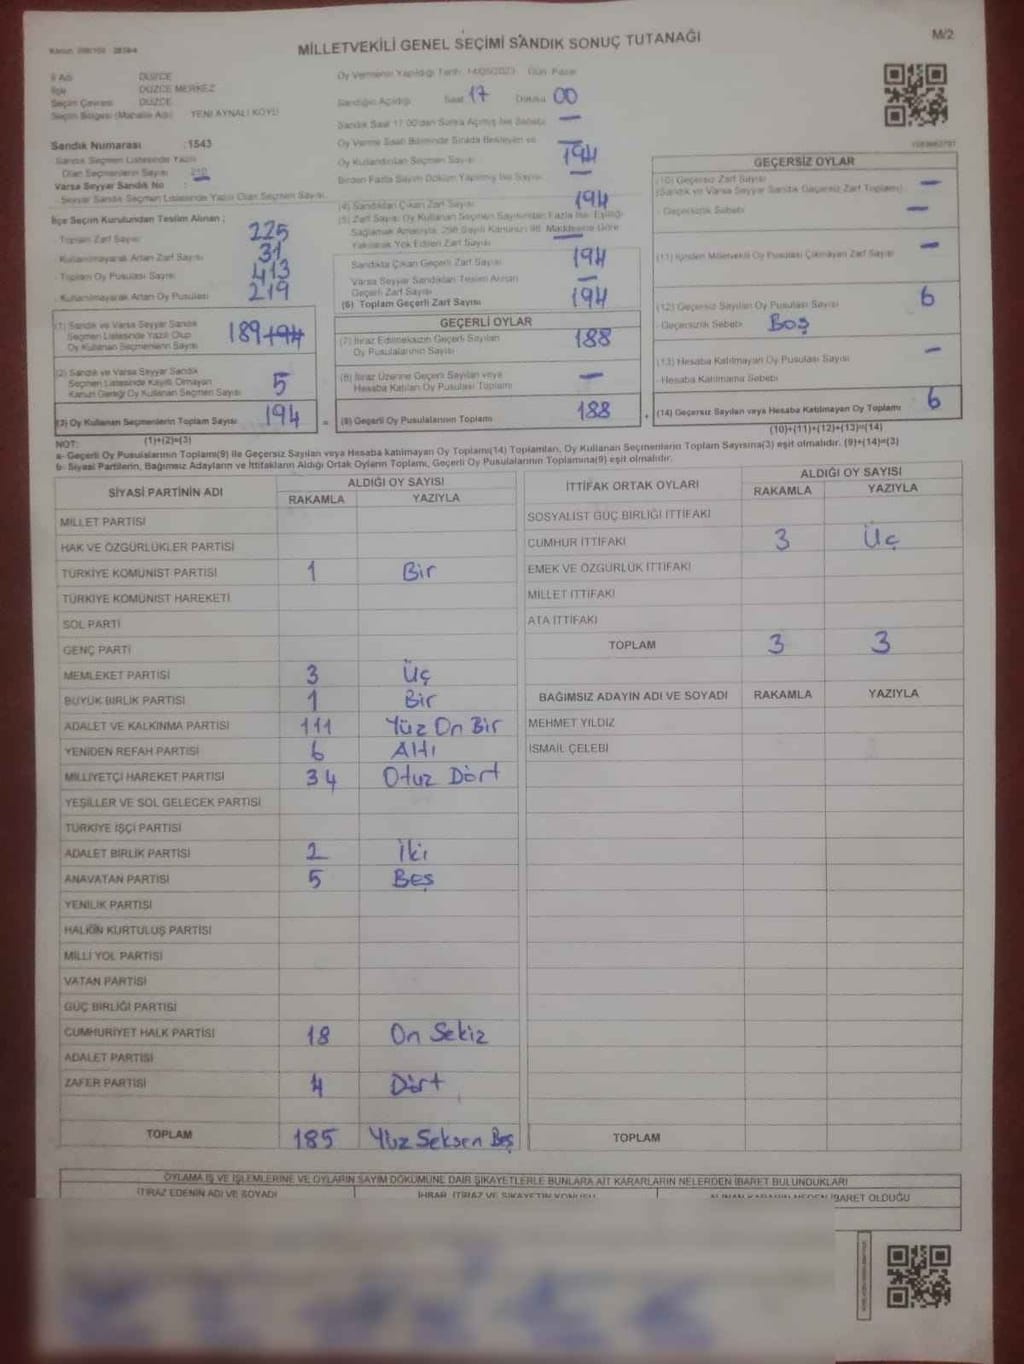 MİLLETVEKİLİ GENEL SEÇİMİ SANDIK SONUÇ TUTANAĞI
M/2
İl Adı DÜZCE
İlçe DÜZCE MERKEZ
Seçim Çevresi DÜZCE
Seçim Bölgesi (Mahalle Adı) YENİ AYNALI KÖYÜ
Sandık Numarası :1543
Sandık Seçmen Listesinde Yazılı
Olan Seçmenlerin Sayısı 210
Varsa Seyyar Sandık No :
Seyyar Sandık Seçmen Listesinde Yazılı Olan Seçmen Sayısı
İlçe Seçim Kurulundan Teslim Alınan ;
Toplam Zarf Sayısı 225
Kullanılmayarak Artan Zarf Sayısı 31
Toplam Oy Pusulası Sayısı 413
Kullanılmayarak Artan Oy Pusulası 219
(1) Sandık ve Varsa Seyyar Sandık
Seçmen Listesinde Yazılı Olup
Oy Kullanan Seçmenlerin Sayısı 189 194
(2) Sandık ve Varsa Seyyar Sandık
Seçmen Listesinde Kayıtlı Olmayan
Kanun Gereği Oy Kullanan Seçmen Sayısı 5
(3) Oy Kullanan Seçmenlerin Toplam Sayısı 194
(1)+(2)=(3)
Oy Vermenin Yapıldığı Tarih: 14/05/2023 Gün: Pazar
Sandığın Açıldığı Saat 17 Dakika 00
Sandık Saat 17.00'den Sonra Açılmış İse Sebebi —
Oy Verme Saati Bitiminde Sırada Bekleyen ve
Oy Kullandırılan Seçmen Sayısı 194
Birden Fazla Sayım Döküm Yapılmış İse Sayısı —
(4) Sandıktan Çıkan Zarf Sayısı 194
(5) Zarf Sayısı Oy Kullanan Seçmen Sayısından Fazla İse, Eşitliği
Sağlamak Amacıyla, 298 Sayılı Kanunun 98. Maddesine Göre
Yakılarak Yok Edilen Zarf Sayısı —
Sandıkta Çıkan Geçerli Zarf Sayısı 194
Varsa Seyyar Sandıktan Teslim Alınan
Geçerli Zarf Sayısı —
(6) Toplam Geçerli Zarf Sayısı 194
GEÇERLİ OYLAR
(7) İtiraz Edilmeksizin Geçerli Sayılan
Oy Pusulalarının Sayısı 188
(8) İtiraz Üzerine Geçerli Sayılan veya
Hesaba Katılan Oy Pusulası Toplamı —
= (9) Geçerli Oy Pusulalarının Toplamı 188
GEÇERSİZ OYLAR
(10) Geçersiz Zarf Sayısı
(Sandık ve Varsa Seyyar Sandık Geçersiz Zarf Toplamı) —
- Geçersizlik Sebebi —
(11) İçinden Milletvekili Oy Pusulası Çıkmayan Zarf Sayısı —
(12) Geçersiz Sayılan Oy Pusulası Sayısı 6
- Geçersizlik Sebebi BOŞ
(13) Hesaba Katılmayan Oy Pusulası Sayısı —
- Hesaba Katılmama Sebebi
+ (14) Geçersiz Sayılan veya Hesaba Katılmayan Oy Toplamı 6
(10)+(11)+(12)+(13)=(14)
NOT:
a- Geçerli Oy Pusulalarının Toplamı(9) ile Geçersiz Sayılan veya Hesaba katılmayan Oy Toplamı(14) Toplamları, Oy Kullanan Seçmenlerin Toplam Sayısına(3) eşit olmalıdır. (9)+(14)=(3)
b- Siyasi Partilerin, Bağımsız Adayların ve İttifakların Aldığı Ortak Oyların Toplamı, Geçerli Oy Pusulalarının Toplamına(9) eşit olmalıdır.
SİYASİ PARTİNİN ADI ALDIĞI OY SAYISI
RAKAMLA YAZIYLA
MİLLET PARTİSİ
HAK VE ÖZGÜRLÜKLER PARTİSİ
TÜRKİYE KOMÜNİST PARTİSİ 1 Bir
TÜRKİYE KOMÜNİST HAREKETİ
SOL PARTİ
GENÇ PARTİ
MEMLEKET PARTİSİ 3 Üç
BÜYÜK BİRLİK PARTİSİ 1 Bir
ADALET VE KALKINMA PARTİSİ 111 Yüz On Bir
YENİDEN REFAH PARTİSİ 6 Altı
MİLLİYETÇİ HAREKET PARTİSİ 34 Otuz Dört
YEŞİLLER VE SOL GELECEK PARTİSİ
TÜRKİYE İŞÇİ PARTİSİ
ADALET BİRLİK PARTİSİ 2 İki
ANAVATAN PARTİSİ 5 Beş
YENİLİK PARTİSİ
HALKIN KURTULUŞ PARTİSİ
MİLLİ YOL PARTİSİ
VATAN PARTİSİ
GÜÇ BİRLİĞİ PARTİSİ
CUMHURİYET HALK PARTİSİ 18 On Sekiz
ADALET PARTİSİ
ZAFER PARTİSİ 4 Dört
TOPLAM 185 Yüz Seksen Beş
İTTİFAK ORTAK OYLARI ALDIĞI OY SAYISI
RAKAMLA YAZIYLA
SOSYALİST GÜÇ BİRLİĞİ İTTİFAKI
CUMHUR İTTİFAKI 3 Üç
EMEK VE ÖZGÜRLÜK İTTİFAKI
MİLLET İTTİFAKI
ATA İTTİFAKI
TOPLAM 3 3
BAĞIMSIZ ADAYIN ADI VE SOYADI RAKAMLA YAZIYLA
MEHMET YILDIZ
İSMAİL ÇELEBİ
TOPLAM
OYLAMA İŞ VE İŞLEMLERİNE VE OYLARIN SAYIM DÖKÜMÜNE DAİR ŞİKAYETLERLE BUNLARA AİT KARARLARIN NELERDEN İBARET BULUNDUKLARI
İTİRAZ EDENİN ADI VE SOYADI İHBAR, İTİRAZ VE ŞİKAYETİN KONUSU ALINAN KARARIN NEDEN İBARET OLDUĞU